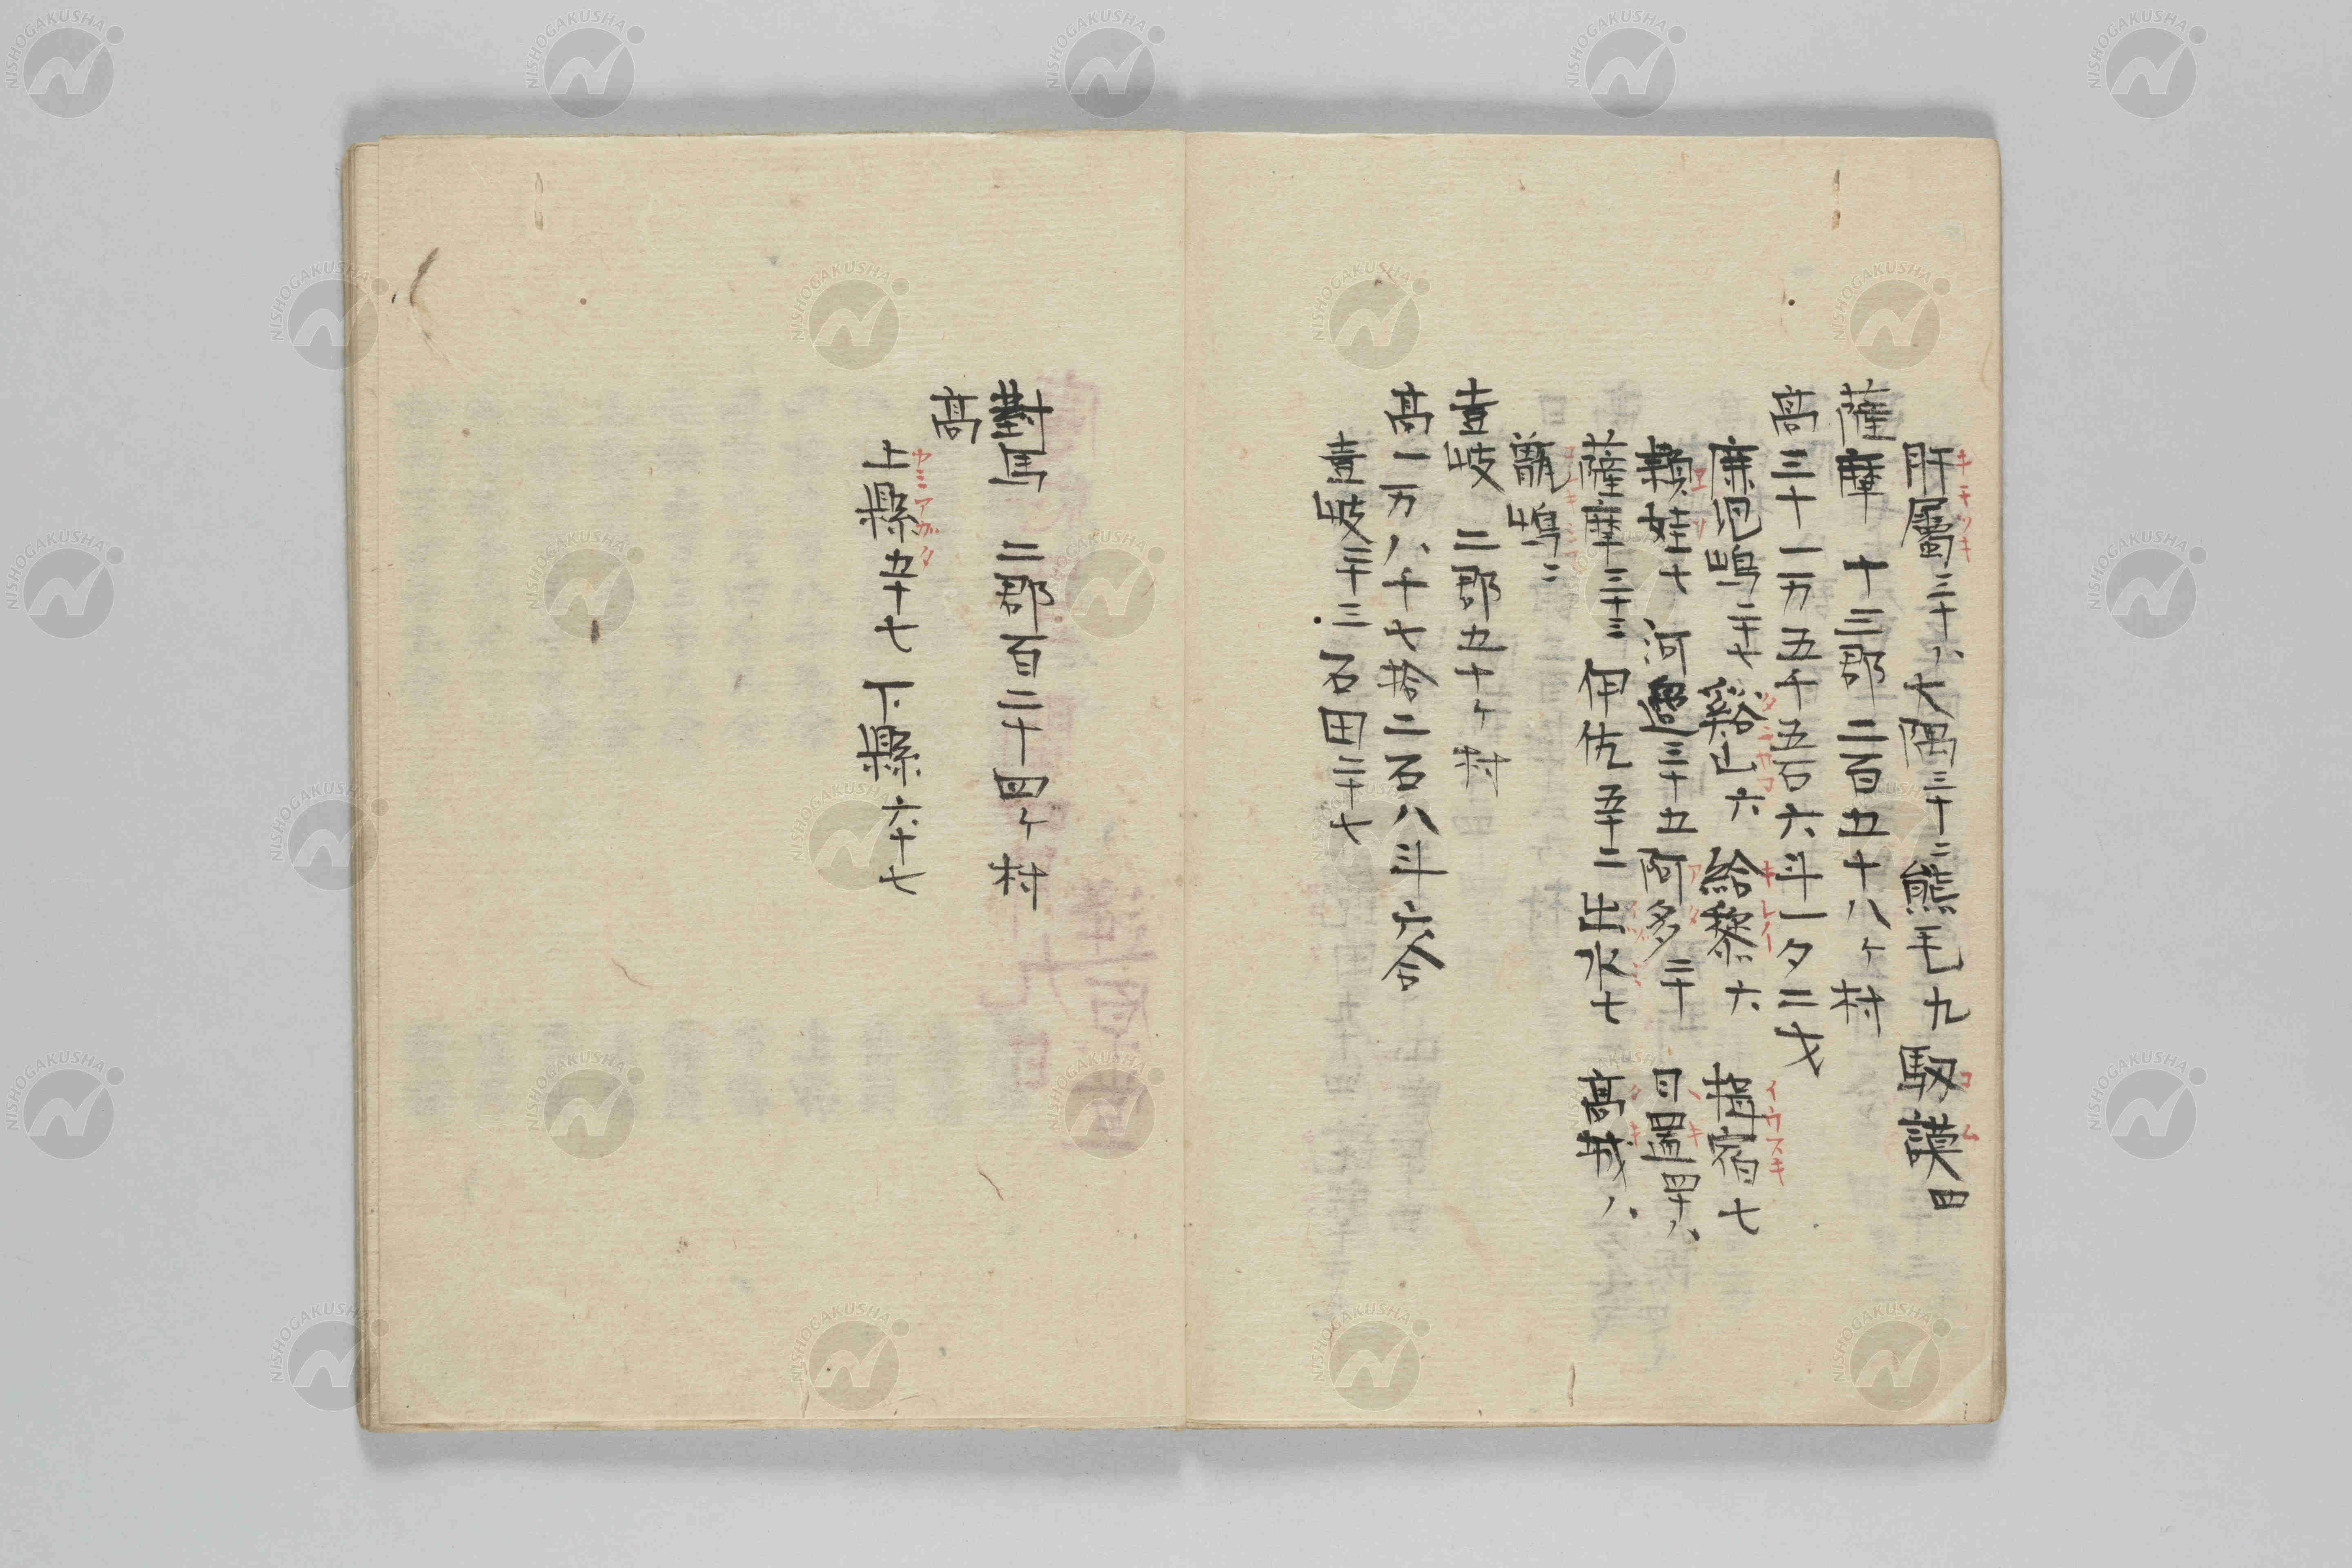 肝屬三十八大隅三十二熊毛九馭謨四
薩摩 十三郡二百五十八ケ村
高三十一万五千五石六斗一夕二才
鹿児嶋二十七 谿山六 給黎六 揖宿七
頴娃十 河邉三十五 阿多二十 日置四十八
薩摩三十三 伊佐五十二 出水七 高城八
甑嶋二
壹岐 二郡五十ケ村
高一万八千七拾二石八斗六合
壹岐二十三 石田二十七
對馬 二郡百二十四ケ村
高
上縣五十七 下縣六十七
NISHOGAKUSHA